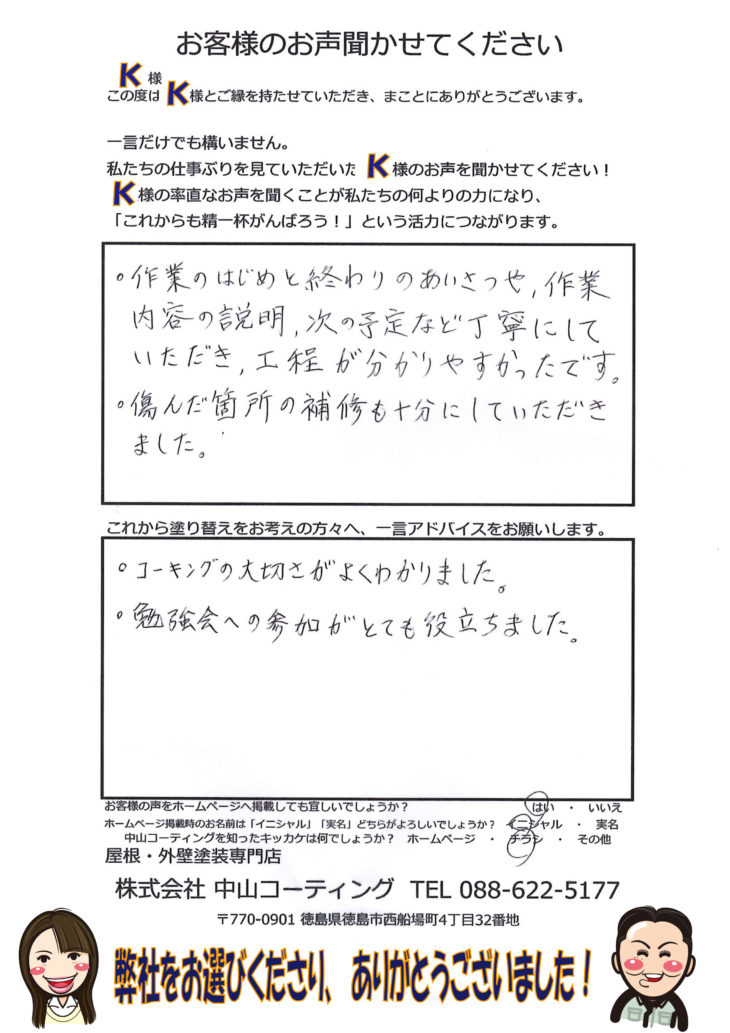 お客様のお声聞かせてください
K 様
この度は K様とご縁を持たせていただき、まことにありがとうございます。
一言だけでも構いません。
私たちの仕事ぶりを見ていただいた K 様のお声を聞かせてください！
K 様の率直なお声を聞くことが私たちの何よりの力になり、
「これからも精一杯がんばろう！」という活力につながります。
○作業のはじめと終わりのあいさつや,作業
内容の説明,次の予定など丁寧にして
いただき,工程が分かりやすかったです。
○傷んだ箇所の補修も十分にしていただき
ました。
これから塗り替えをお考えの方々へ、一言アドバイスをお願いします。
○コーキングの大切さがよくわかりました。
○勉強会への参加がとても役立ちました。
お客様の声をホームページへ掲載しても宜しいでしょうか？ はい ・ いいえ
ホームページ掲載時のお名前は「イニシャル」「実名」どちらがよろしいでしょうか？ イニシャル ・ 実名
中山コーティングを知ったキッカケは何でしょうか？ ホームページ ・ チラシ ・ その他
屋根・外壁塗装専門店
株式会社 中山コーティング TEL 088-622-5177
〒770-0901 徳島県徳島市西船場町4丁目32番地
弊社をお選びくださり、ありがとうございました！